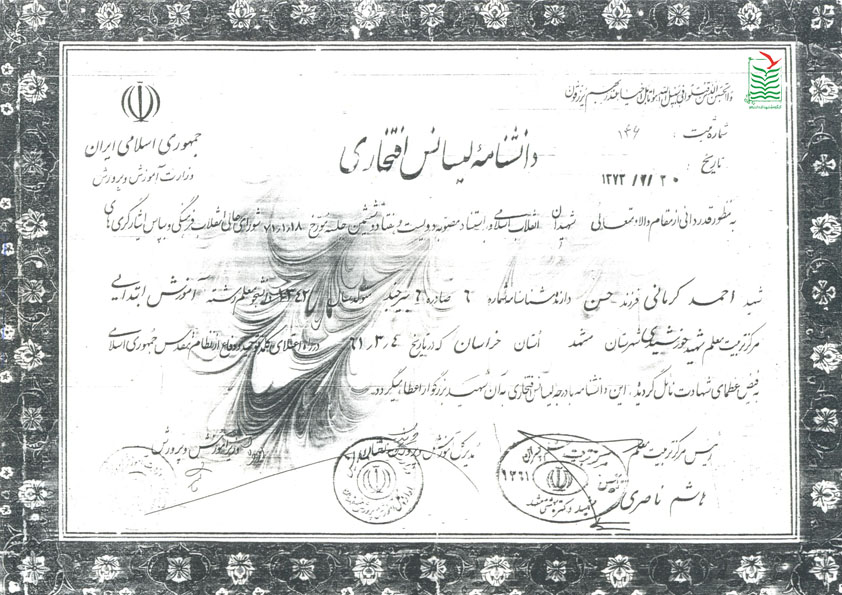 جمهوری اسلامی ایران
وزارت آموزش و پرورش
شماره ثبت : ۱۴۶
تاریخ : ۱۳۷۳/۶/۳۰
دانشنامهٔ لیسانس افتخاری
به منظور قدردانی از مقام والا و متعالی شهیدان انقلاب اسلامی و به استناد مصوبه دویست و هفتاد و ششمین جلسه مورخ ۷۱،۱،۱۸ شورای عالی انقلاب فرهنگی و به پاس ایثارگری های
شهید احمد کرمانی فرزند حسن دارنده شناسنامه شماره ۶ صادره بیرجند متولد سال ۱۳۴۲ دانشجو معلم رشته آموزش ابتدایی
مرکز تربیت معلم شهید خورشیدی شهرستان مشهد استان خراسان که در تاریخ ۶۱،۳،۴ در راه اعتلای کلمه توحید و دفاع از نظام مقدس جمهوری اسلامی
به فیض عظمای شهادت نائل گردیده، این دانشنامه با درجه لیسانس افتخاری به آن شهید بزرگوار اعطا میگردد.
رئیس مرکز تربیت معلم
هاشم ناصری
مدیرکل آموزش و پرورش
وزیر آموزش و پرورش